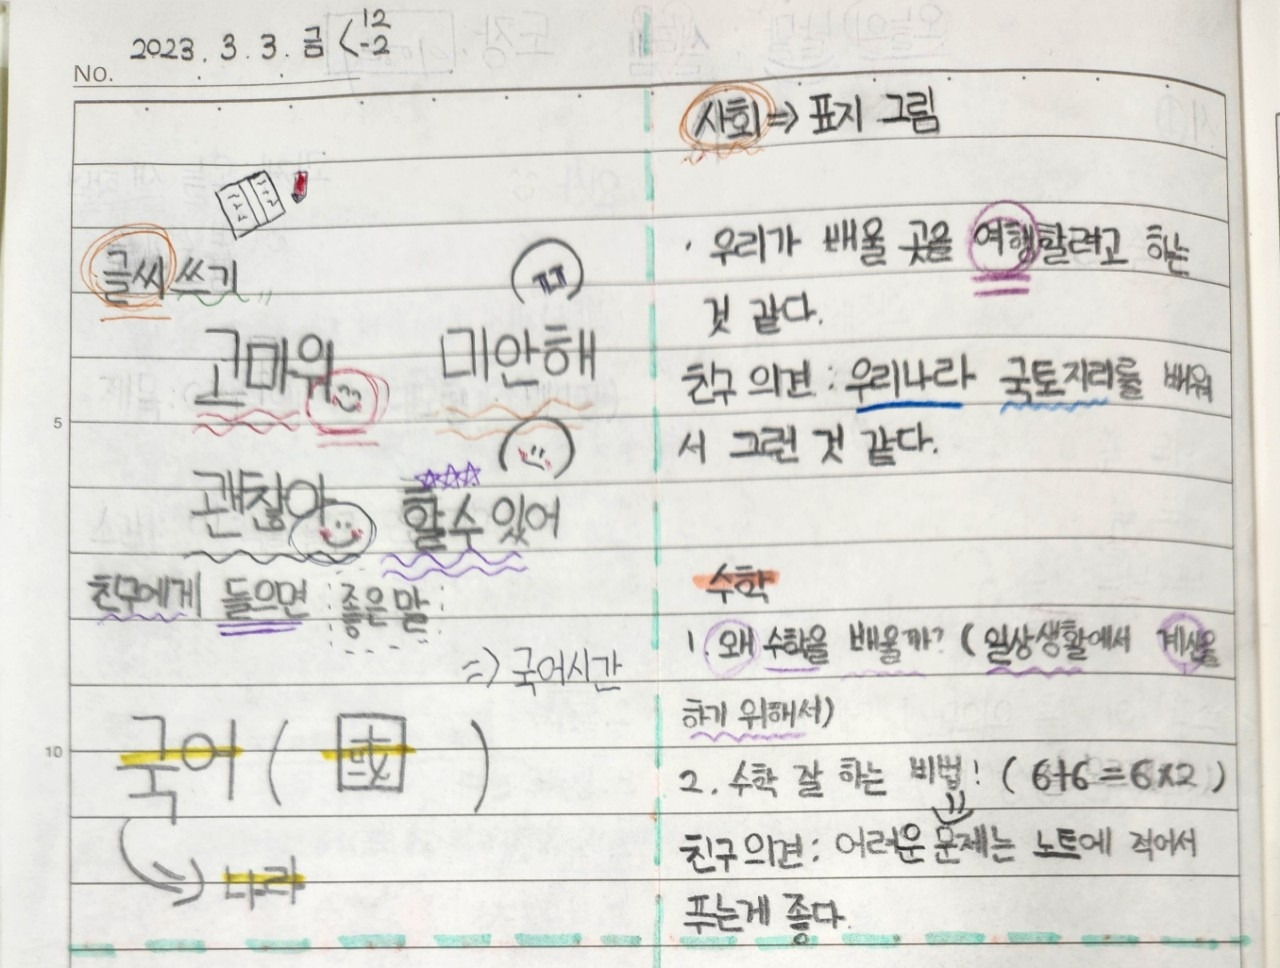 2023. 3. 3. 금 < 12
-2
No.
글씨 쓰기
고마워
미안해
괜찮아
할수있어
친구에게 들으면 좋은말
=> 국어시간
5
10
국어 ( 國 )
나라
사회 => 표지 그림
· 우리가 배울 곳을 여행할려고 하는
것 같다.
친구 의견 : 우리나라 국토지리를 배워
서 그런 것 같다.
수학
1. 왜 수학을 배울까? ( 일상생활에서 계산을
하기 위해서)
2. 수학 잘 하는 비법! ( 6+6=6×2 )
친구 의견 : 어려운 문제는 노트에 적어서
푸는게 좋다.